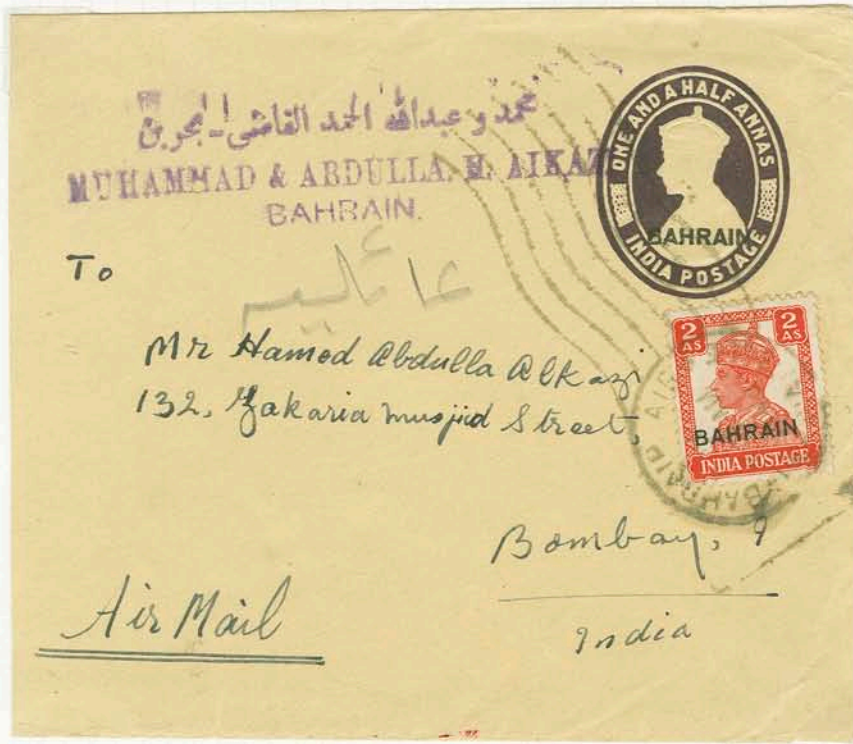 محمد و عبدالله الحمد القاضي - البحرين
MUHAMMAD & ABDULLA. H. ALKAZI
BAHRAIN.
ONE AND A HALF ANNAS
BAHRAIN
INDIA POSTAGE
To
Mr Hamed Abdulla Alkazi
132, Zakaria Musjid Street,
Bombay, 9
India
Air Mail
2 AS
2 AS
BAHRAIN
INDIA POSTAGE
BAHRAIN